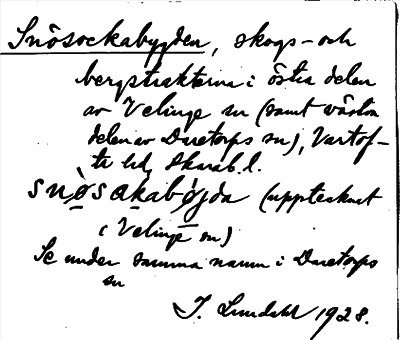 Snösockabygden, skogs- och
bergstrakterna i östra delen
av Velinge sn (samt västra
delen av Daretorps sn), Vartof-
ta hd, Skarab. l.
snòsakabo̱jda (upptecknat
i Velinge sn)
Se under samma namn i Daretorps
sn
J. Lundahl 1928.